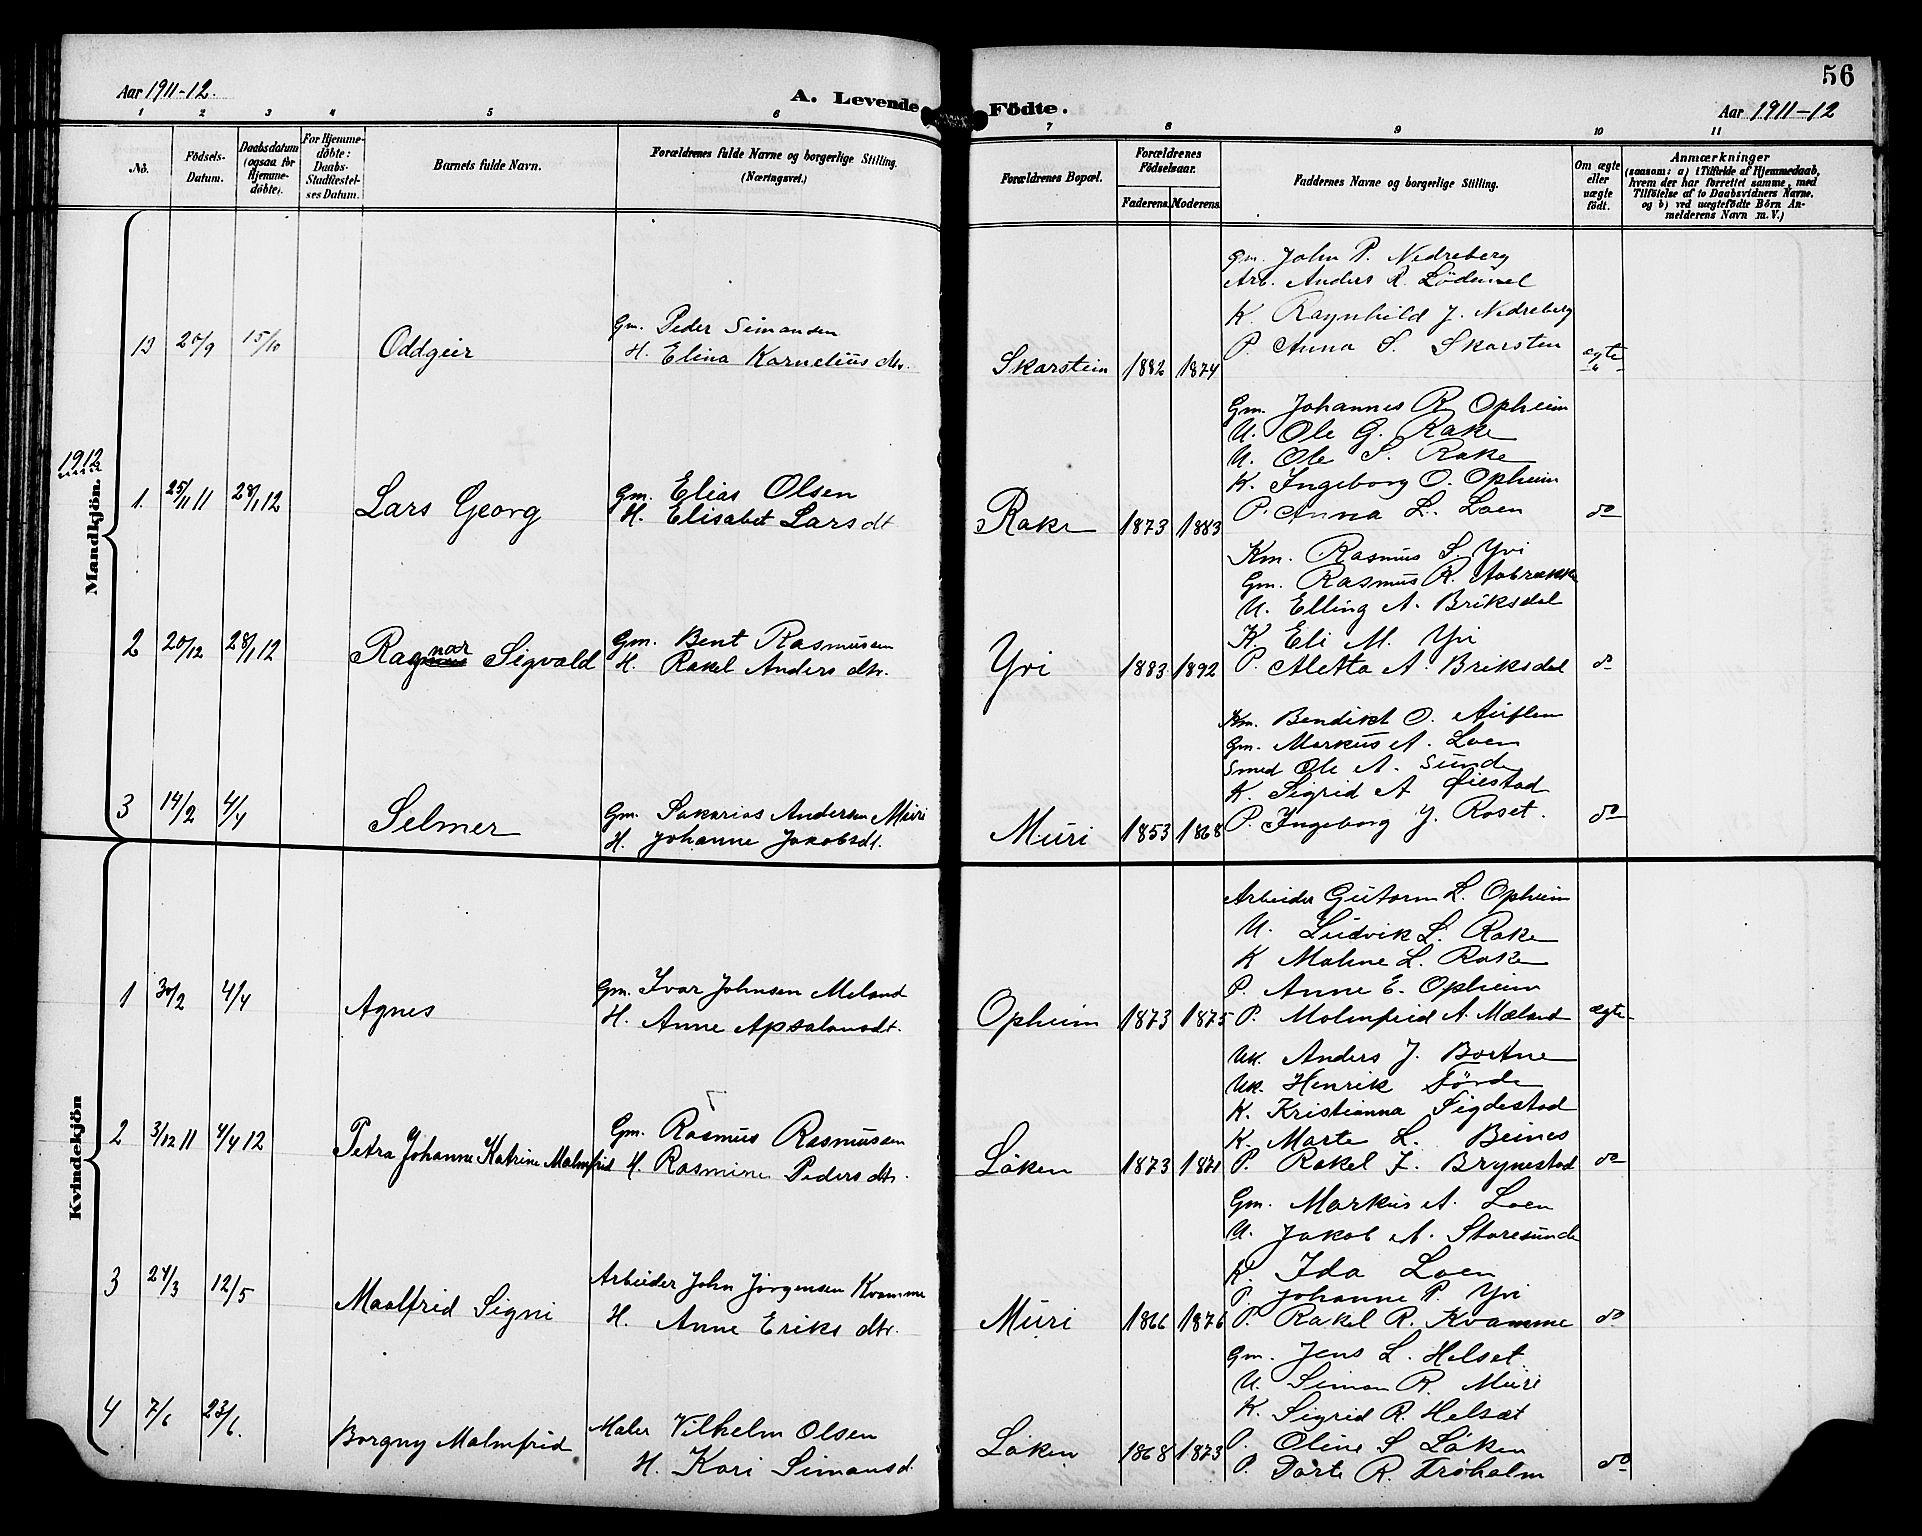 56
Aar 1911-12.
A. Levende Födte.
Aar 1911-12
1 2 3 4 5 6 7 8 9 10 11
No.
Födsels-Datum.
Daabsdatum (ogsaa for Hjemme-döbte).
For Hjemme-döbte: Daabs-Stadfæstel-ses Datum.
Barnets fulde Navn.
Forældrenes fulde Navne og borgerlige Stilling.
(Næringsvei.)
Forældrenes Bopæl.
Forældrenes Födselsaar.
Faderens. Moderens.
Faddernes Navne og borgerlige Stilling.
Om ægte eller uægte födt.
Anmærkninger
(saasom: a) i Tilfælde af Hjemmedaab,
hvem der har forrettet samme, med
Tilföielse af to Daabsvidners Navne,
og b) ved uægtefödte Börn An-
melderens Navn m. V.)
Mandkjön.
13 20/9 15/10 Oddgeir
Gm. Peder Simonsen
H. Elina Kornelius dtr.
Skarstein 1882 1874
Gm. John P. Nedreberg
Arb. Anders R. Lödemel
K. Raynhild J. Nedreberg
P. Anna S. Skarsten
ægte
1912
1. 25/11 11 28/1 12 Lars Georg
Gm. Elias Olsen
H. Elisabet Larsdt
Rake 1873 1883
Gm. Johannes R. Opheim
U. Ole G. Rake
U. Ole S. Rake
K. Ingeborg O. Opheim
P. Anna L. Loen
do
2 20/12 28/1 12 Ragnar Sigvald
Gm. Bent Rasmusen
H. Rakel Anders dtr.
Yri 1883 1892
Km. Rasmus S. Yri
Gm. Rasmus R. Aabrekke
U. Elling A. Briksdal
K. Eli M. Yri
P. Aletta A. Briksdal
do
3 14/2 4/4 Selmer
Gm. Sakarias Andersen Muri
H. Johanne Jakobsdt.
Muri 1853 1868
Km. Bendikt O. Auflem
Gm. Markus A. Loen
Smed Ole A. Sunde
K. Sigrid A Øiestad
P. Ingeborg J. Roset.
do
Kvindekjön
1 30/2 4/4 Agnes
Gm. Ivar Johnsen Meland
H. Anne Apsalonsdt.
Opheim 1873 1875
Arbeider Gutorm L. Opheim
U. Ludvik L. Rake
K Malene L. Rake
P. Anne E. Opheim
P. Malmfrid A. Mæland
ægte
2 3/12 11 4/4 12 Petra Johanne Katrine Malmfrid
Gm. Rasmus Rasmussen
H. Rasmine Peders dtr.
Løken 1873 1871
Uk. Anders J. Bortne
Uk. Henrik Förde
K. Kristianna Sigdestad
K. Marte L. Beines
P. Rakel J. Brynestad
do
3 24/3 12/5 Maalfrid Signi
Arbeider John Jørgensen Kvamme
H. Anne Eriks dtr.
Muri 1866 1876
Gm. Markus A. Loen
U. Jakob A. Storesunde
K. Ida Loen
P. Johanne P. Yri
P. Rakel R. Kvamme
do
4 7/6 23/6. Borgny Malmfrid
Maler Vilhelm Olsen
H. Kari Simonsd.
Løken 1868 1873
Gm. Jens L. Helset.
U. Simon R. Muri
K. Sigrid R. Helsæt
P. Oline S Løken
P. Dorte R. Trøholm
do